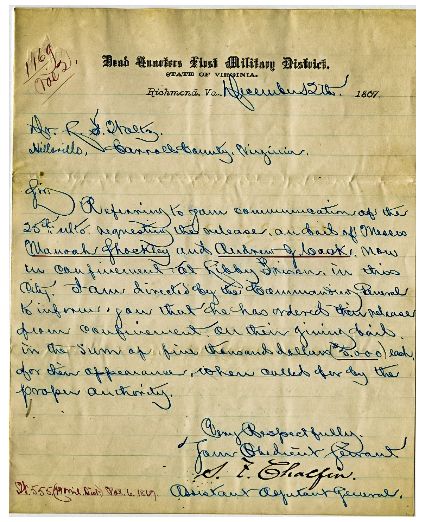 1169
Vol 2
Head Quarters First Military District.
STATE OF VIRGINIA.
Richmond, Va. December 12th 1867.
Hillsville, Carroll County, Virginia.
Sir
Referring to your communication of the
25th ulto requesting the release, on bail of Messrs
Manoah Shockley and Andrew J. Cock, now
in confinement at Libby Prison, in this
City. I am directed by the Commanding General
to inform you that he has ordered their release
from confinement on their giving bail
in the sum of five thousand dollars ($5.000) each,
for their appearance, when called for by the
proper authority.
Very Respectfully
Your Obedient Servant
S. F. Chalfin.
Assistant Adjutant General.
1867.